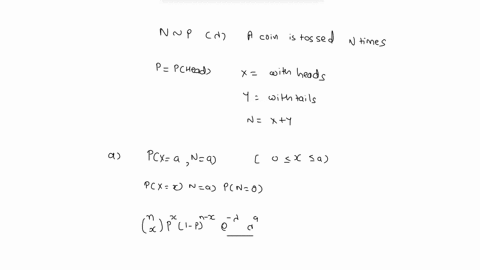 N ~ P (λ) A coin is tossed N times
P = P(Head) X = with heads
Y = with tails
N = X+Y
a) P(X=a, N=a) [ 0 ≤ x ≤ a)
P(X=x) N=a) P(N=0)
(n x) p^x (1-P)^n-x e^-λ a^a